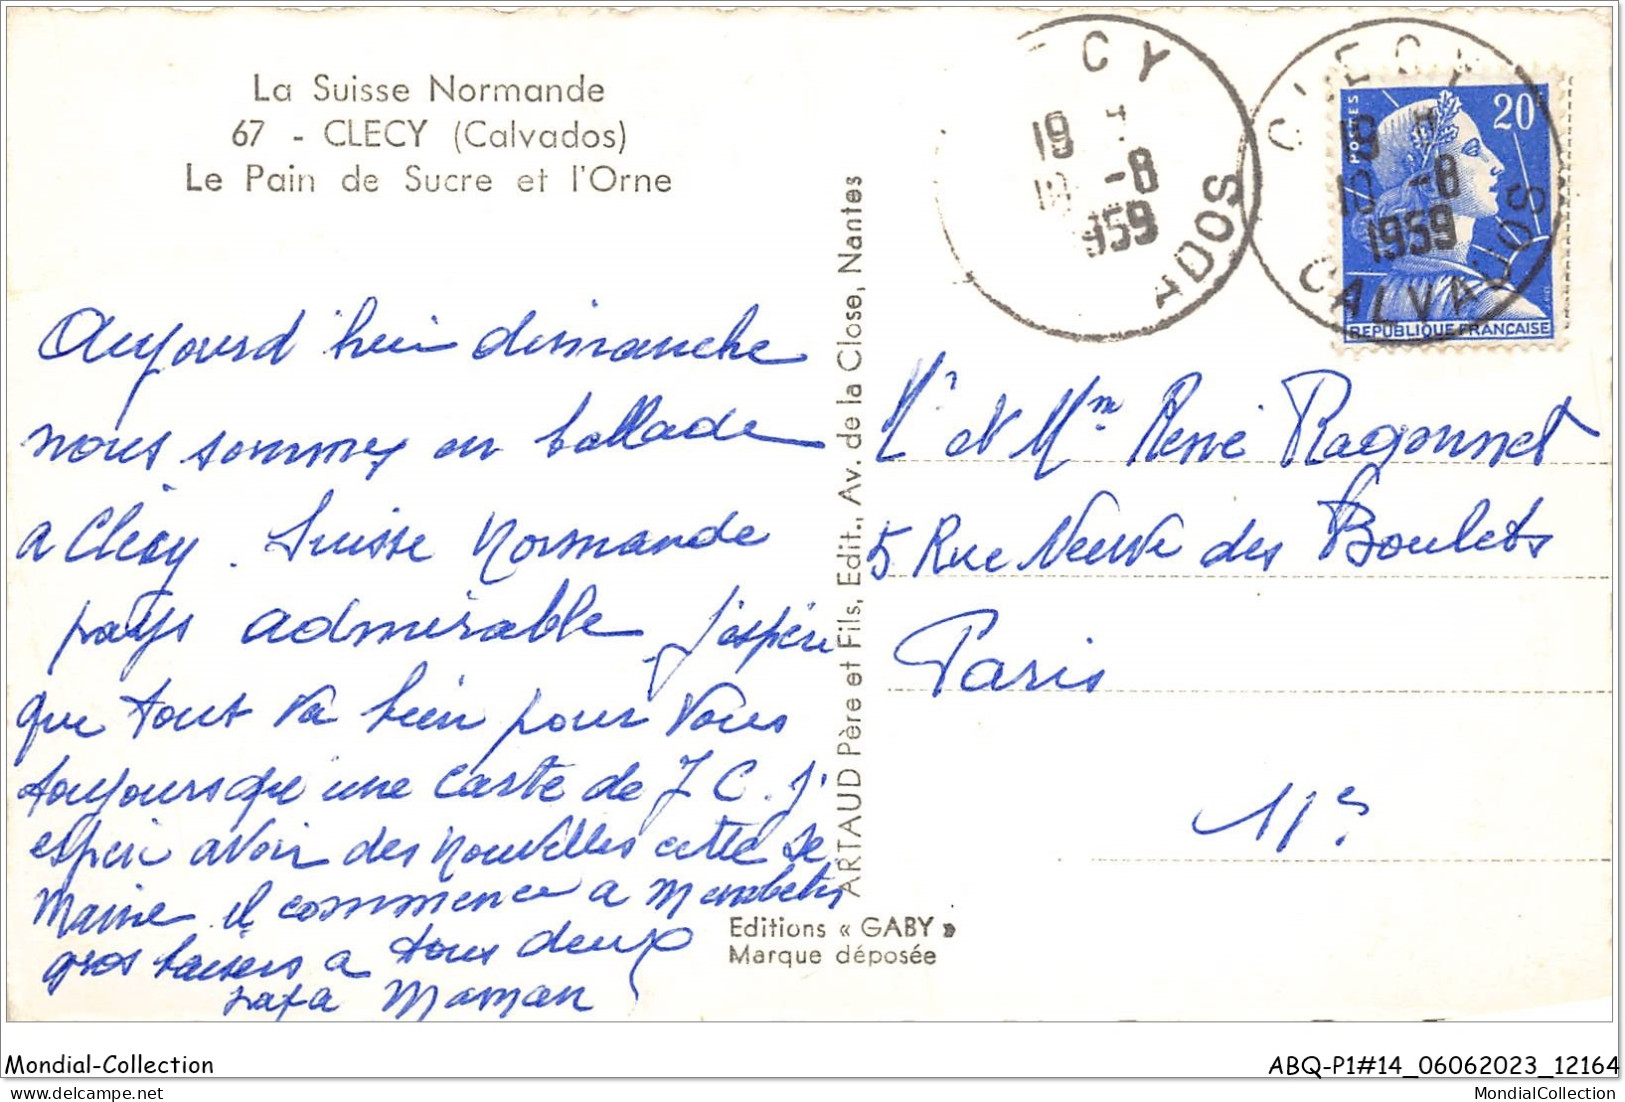 La Suisse Normande
67 - CLECY (Calvados)
Le Pain de Sucre et l'Orne
Aujourd'hui dimanche
nous sommes en ballade
a Clécy. Suisse Normande
pays admirable j'espère
que tout va bien pour vous
toujours que une carte de J C. j'
espère avoir des nouvelles cette se
maine il commence a
gros baisers a tous deux
Papa Maman
ARTAUD Père et Fils, Edit., Av. de la Close, Nantes
Editions « GABY »
Marque déposée
CY
19 H
10 -8
1959
ADOS
CLECY
19 H
10 -8
1959
CALVADOS
POSTES
20F
REPUBLIQUE FRANÇAISE
Mr et Mme René Ragonnet
5 Rue Neuve des Boulets
Paris
11e
Mondial-Collection
ABQ-P1#14_06062023_12164
MondialCollection
MondialCollection